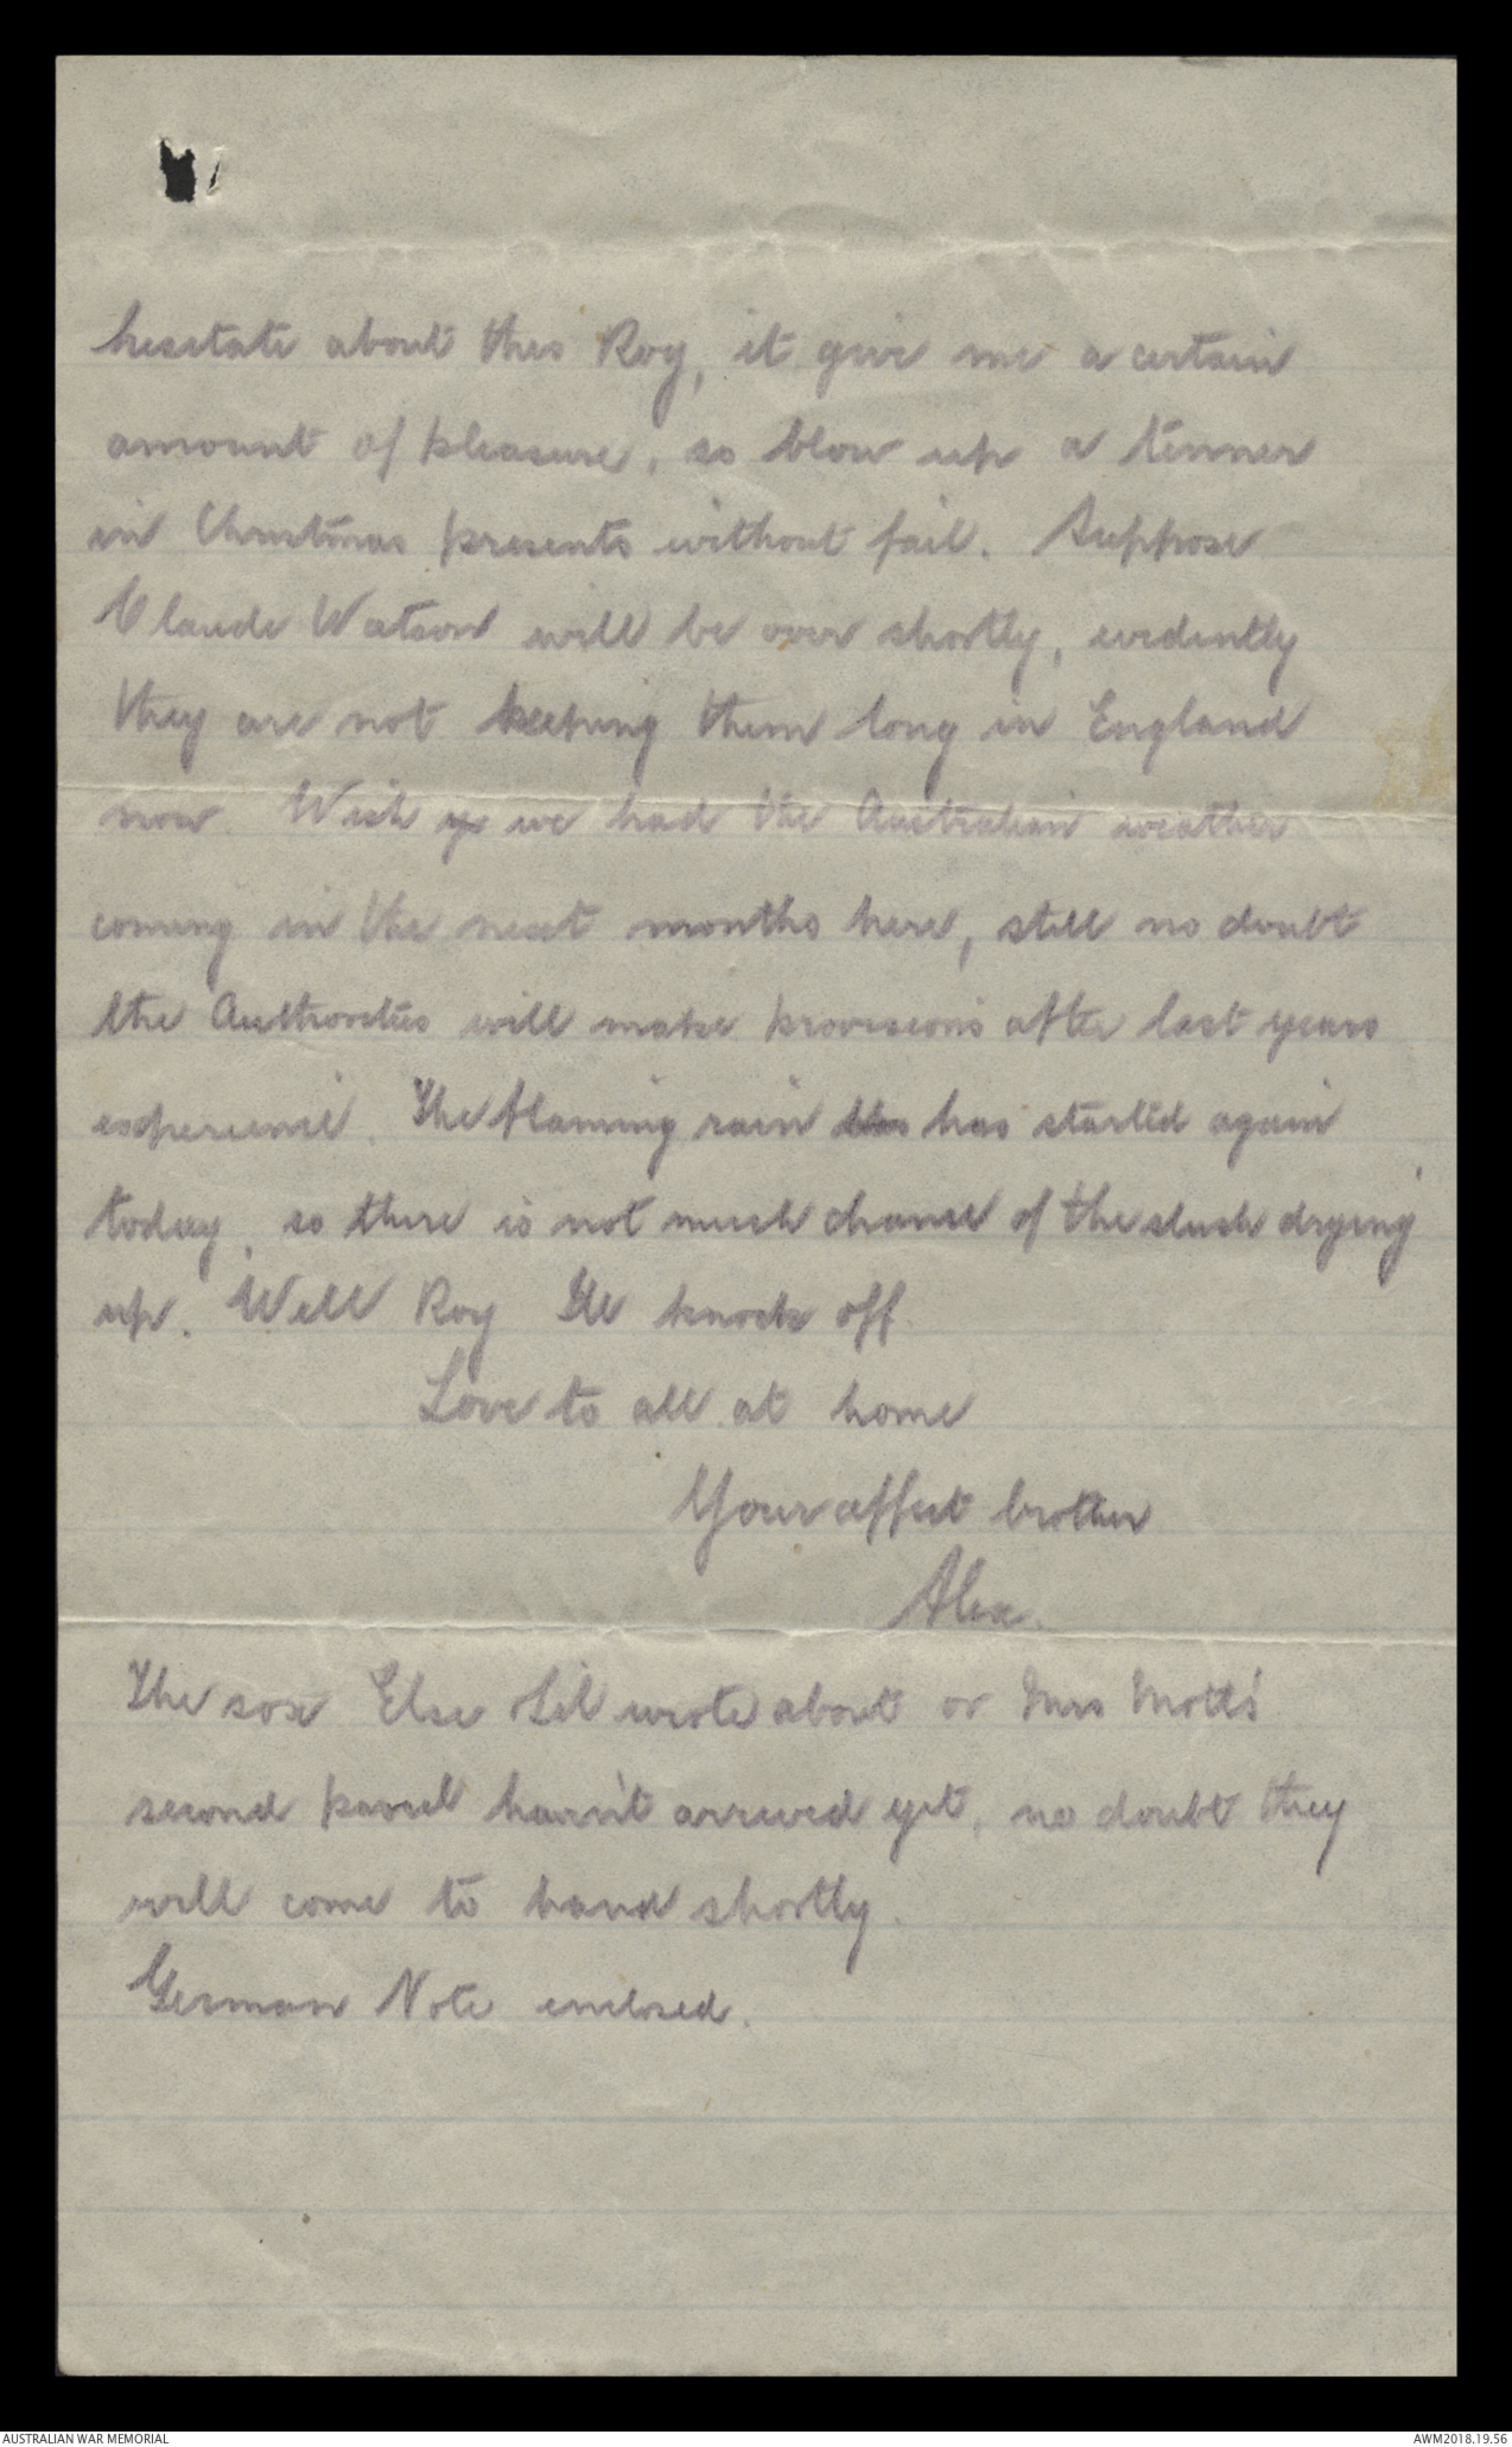 hesitate about this Roy, it give me a certain
amount of pleasure, so blow up a tenner
in Christmas presents without fail. Suppose
Claude Watson will be over shortly, evidently
they are not keeping them long in England
now. Wish we had the Australian weather
coming in the next months here, still no doubt
the Authorities will make provisions after last years
experience. The flaming rain has started again
today, so there is not much chance of the slush drying
up. Well Roy Ill knock off.
Love to all at home
Your affect brother
Alex.
The sox Else Lil wrote about or Mrs Mott's
second parcel havn't arrived yet, no doubt they
will come to hand shortly.
German Note enclosed.
AUSTRALIAN WAR MEMORIAL
AWM2018.19.56